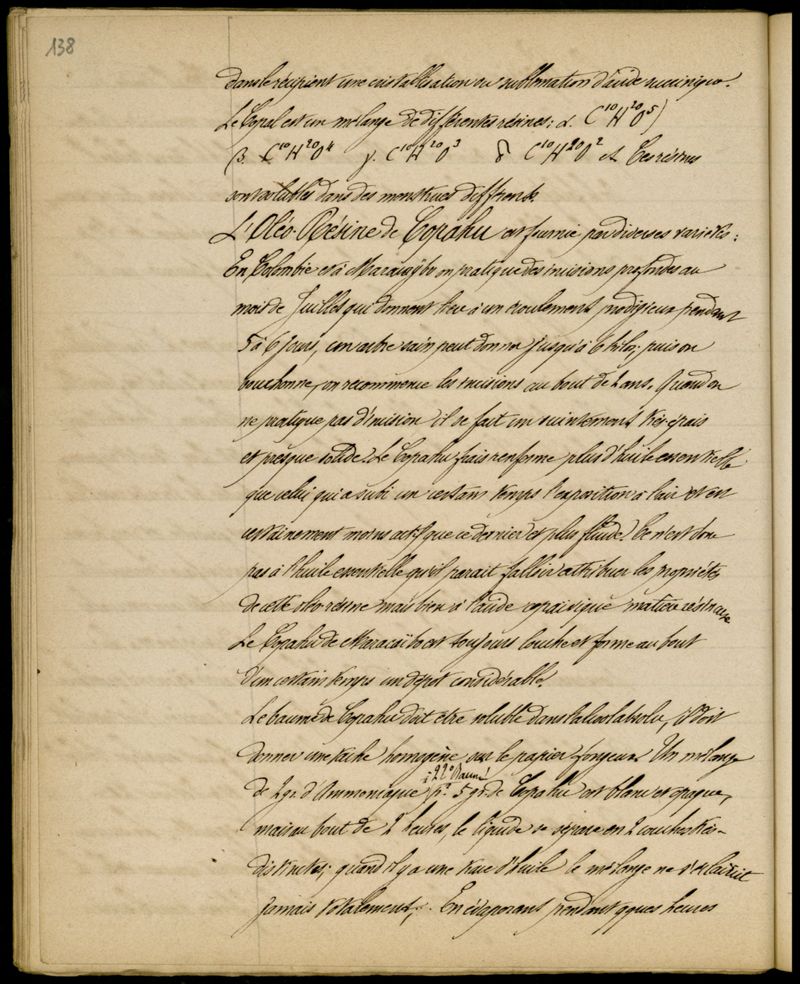 138
dans le récipient une cristallisation ou sublimation d'acide succinique.
Le Copal est un mélange de différentes résines: α. C¹⁰H²⁰O⁵)
β. C¹⁰H²⁰O⁴ γ. C¹⁰H²⁰O³ δ C¹⁰H²⁰O² et Ces résines
sont solubles dans des menstrues différents
L'Oléo-Résine de Copahu est fournie par diverses variétés:
En Colombie et à Maracaybo on pratique des incisions profondes au
mois de Juillet qui donnent lieu à un écoulement prodigieux pendant
5 à 6 jours, un arbre sain peut donner jusqu'à 6 kilos; puis on
bouchonne, on recommence les incisions au bout de 2 ans. Quand on
ne pratique pas d'incision il se fait un suintement très épais
et presque solide. Le Copahu frais renferme plus d'huile essentielle
que celui qui a subi un certain temps l'exposition à l'air et est
certainement moins actif que ce dernier et plus fluide. Ce n'est donc
pas à l'huile essentielle qu'il parait falloir attribuer les propriétés
de cette oléo résine mais bien à l'acide copaivique matière résineuse
Le Copahu de Maracaïbo est toujours louche et forme au bout
d'un certain temps un dépôt considérable.
Le baume de Copahu doit être soluble dans l'alcool absolu, il doit
donner une tache homogène sur le papier Un mélange
à 22° Baumé
de 2 gr. d'Ammoniaque pr. 5 gr. de Copahu est blanc et opaque,
mais au bout de 2 heures, le liquide se sépare en 2 couches très-
distinctes; quand il y a une trace d'huile le mélange ne s'éclaircit
jamais totalement. En évaporant pendant qques heures